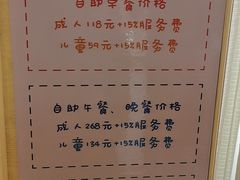 自助早餐价格
成人118元+15%服务费
儿童59元+15%服务费
自助午餐、晚餐价格
成人268元+15%服务费
儿童134元+15%服务费